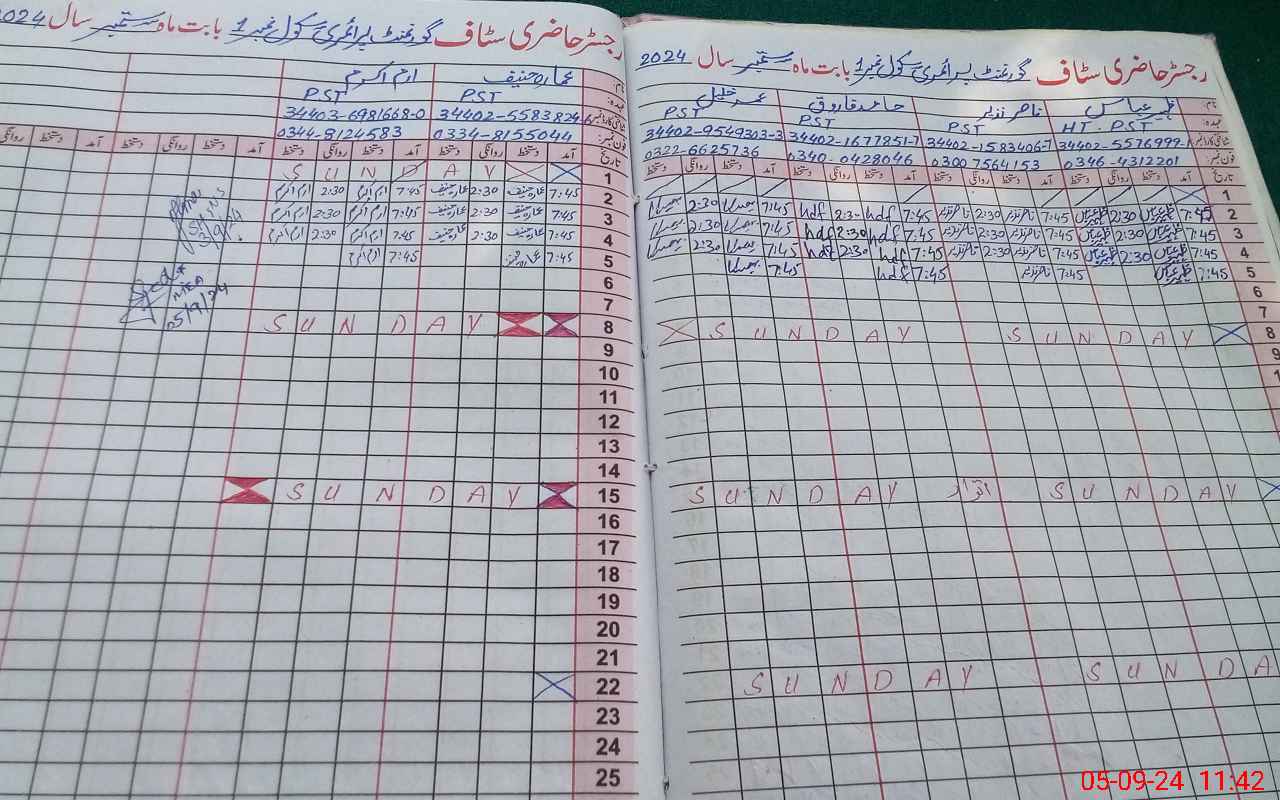 رجسٹر حاضری سٹاف گورنمنٹ پرائمری سکول نمبر 1 بابت ماہ ستمبر سال 2024
نام: ظہیر عباس ناصر نذیر حامد فاروق عمر خلیل
عہدہ: HT-PST PST PST
شناختی کارڈ نمبر 34402-5576999- 34402-1583406-7 34402-1677851-7 34402-9549303-3
فون نمبر: 0346-4312201 0300 7564153 0340-0428046 0322-6625736
تاریخ آمد دستخط روانگی دستخط آمد دستخط روانگی دستخط آمد دستخط روانگی دستخط آمد دستخط روانگی دستخط
1
2 7:45 2:30 7:45 2:30 7:45 hdf 2:30 hdf 7:45 2:30
3 7:45 2:30 7:45 2:30 7:45 hdf 2:30 hdf 7:45 2:30
4 7:45 2:30 7:45 2:30 7:45 hdf 2:30 hdf 7:45 2:30
5 7:45 7:45 7:45 hdf 7:45
6
7
SUNDAY SUNDAY 8
9
1
SUNDAY اتوار SUNDAY
SUNDAY SUNDA
رجسٹر حاضری سٹاف گورنمنٹ پرائمری سکول نمبر 1 بابت ماہ ستمبر سال 2024
نام: عمارہ حنیف ارم اکرم
عہدہ: PST PST
شناختی کارڈ نمبر 34402-5583824 34403-6981668-0
فون نمبر: 0334-8155044 0344-8124583
تاریخ آمد دستخط روانگی دستخط آمد دستخط روانگی دستخط آمد دستخط روانگی دستخط آمد دستخط روانگی
SUNDAY 1
2 7:45 عمارہ حنیف 2:30 عمارہ حنیف 7:45 ارم اکرم 2:30 ارم اکرم
3 7:45 عمارہ حنیف 2:30 عمارہ حنیف 7:45 ارم اکرم 2:30 ارم اکرم
4 7:45 عمارہ حنیف 2:30 عمارہ حنیف 7:45 ارم اکرم 2:30 ارم اکرم
5 7:45 عمارہ حنیف 7:45 ارم اکرم
6
7
SUNDAY 8
9
10
11
12
13
14
SUNDAY 15
16
17
18
19
20
21
22
23
24
25
3/9/24
MEA
05/9/24
05-09-24 11:42